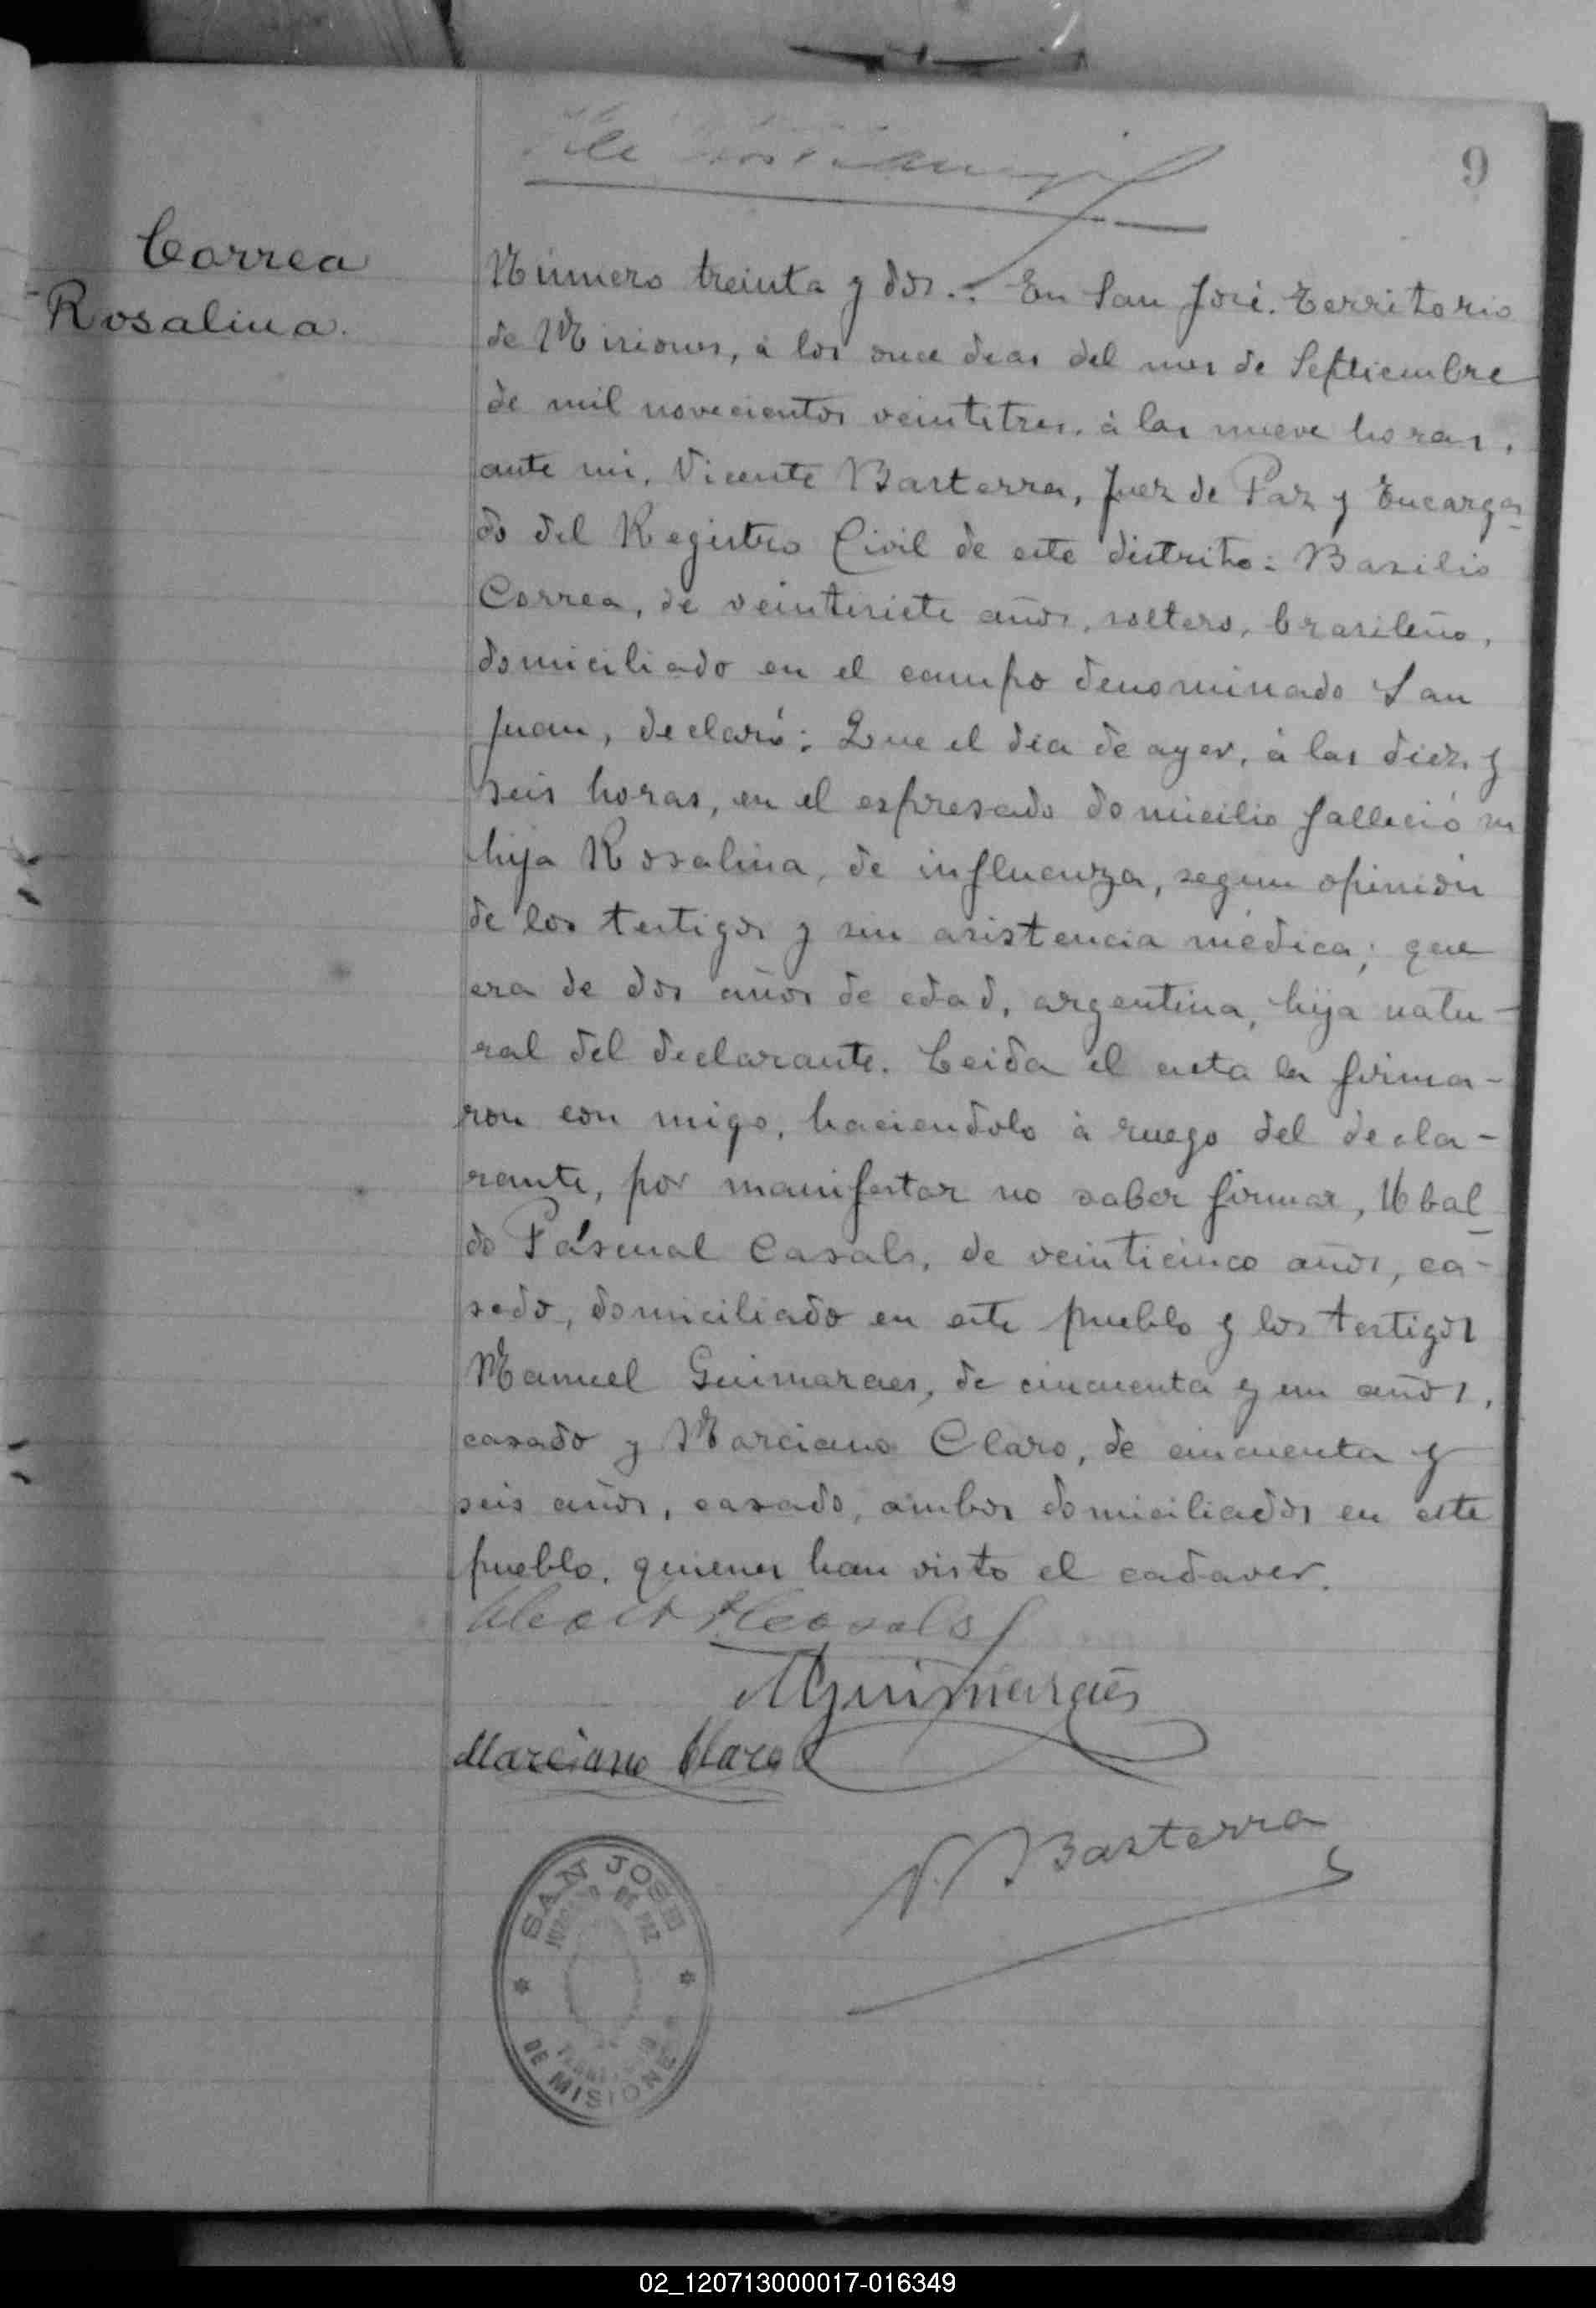 9
Correa
Rosalina.
Número treinta y dos.. En San José. Territorio
de Misiones, á los once dias del mes de Septiembre
de mil novecientos veintitres. á las nueve horas,
ante mi, Vicente Basterra, Juez de Paz y Encarga-
do del Registro Civil de este distrito: Basilio
Correa, de veintisiete años, soltero, brasileño,
domiciliado en el campo denominado San
Juan, declaró: Que el dia de ayer, á las diez y
seis horas, en el espresado domicilio falleció su
hija Rosalina, de influenza, segun opinión
de los testigos y sin asistencia médica; que
era de dos años de edad, argentina, hija natu-
ral del declarante. Leida el acta la firma-
ron con migo, haciendolo á ruego del decla-
rante, por manifestar no saber firmar, Ubal-
do Pascual Casals, de veinticinco años, ca-
sado, domiciliado en este pueblo y los testigos
Manuel Guimaraes, de cincuenta y un años,
casado y Marciano Claro, de cincuenta y
seis años, casado, ambos domiciliados en este
pueblo, quienes han visto el cadaver.
MGuimarães
Marciano Claro
V. Basterra
SAN JOSE
JUZGADO DE PAZ
TERRITORIO
DE MISIONES
02_120713000017-016349